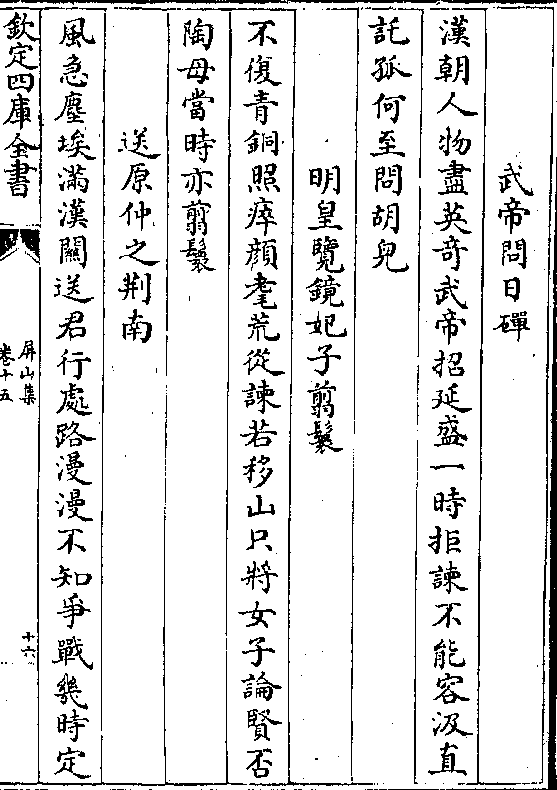 武帝問日磾
漢朝人物盡英奇武帝招延盛一時拒諫不能容汲直
託孤何至問胡兒
明皇覽鏡妃子翦鬟
不復青銅照瘁顔耄荒從諫若移山只將女子論賢否
陶母當時亦翦鬟
送原仲之荆南
風急塵埃滿漢關送君行處路漫漫不知爭戰幾時定
欽定四庫全書
屏山集
卷十五
十六